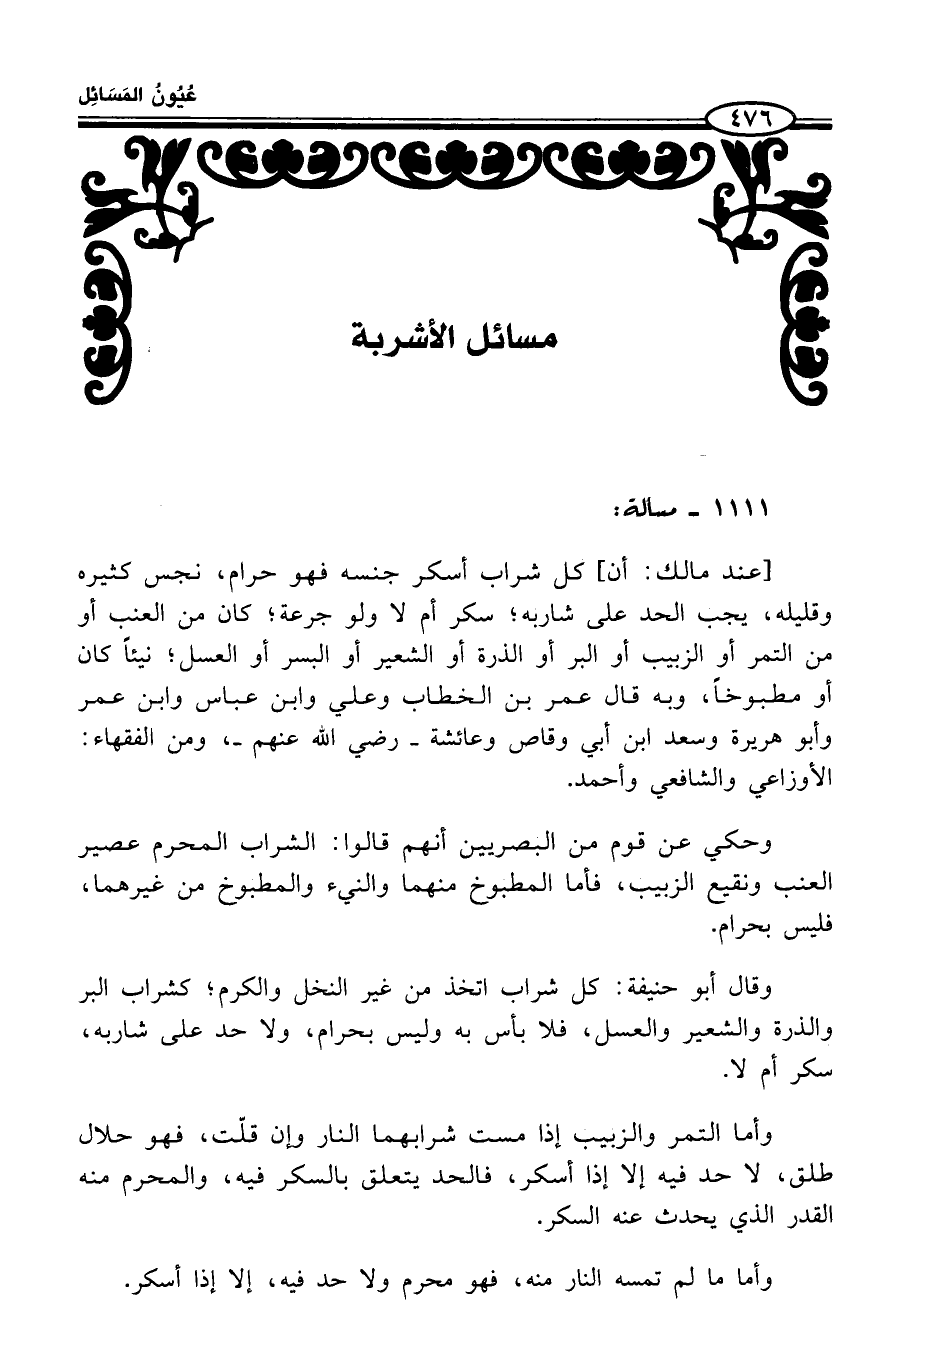 عُيُونُ المَسَائِل
٤٧٦
مسائل الأشربة
١١١١ ـ مسألة:
[عند مالك: أن] كل شراب أسكر جنسه فهو حرام، نجس كثيره
وقليله، يجب الحد على شاربه؛ سكر أم لا ولو جرعة؛ كان من العنب أو
من التمر أو الزبيب أو البر أو الذرة أو الشعير أو البسر أو العسل؛ نيئاً كان
أو مطبوخاً، وبه قال عمر بن الخطاب وعلي وابن عباس وابن عمر
وأبو هريرة وسعد ابن أبي وقاص وعائشة ـ رضي الله عنهم ـ، ومن الفقهاء:
الأوزاعي والشافعي وأحمد.
وحكي عن قوم من البصريين أنهم قالوا: الشراب المحرم عصير
العنب ونقيع الزبيب، فأما المطبوخ منهما والنيء والمطبوخ من غيرهما،
فليس بحرام.
وقال أبو حنيفة: كل شراب اتخذ من غير النخل والكرم؛ كشراب البر
والذرة والشعير والعسل، فلا بأس به وليس بحرام، ولا حد على شاربه،
سكر أم لا.
وأما التمر والزبيب إذا مست شرابهما النار وإن قلّت، فهو حلال
طلق، لا حد فيه إلا إذا أسكر، فالحد يتعلق بالسكر فيه، والمحرم منه
القدر الذي يحدث عنه السكر.
وأما ما لم تمسه النار منه، فهو محرم ولا حد فيه، إلا إذا أسكر.